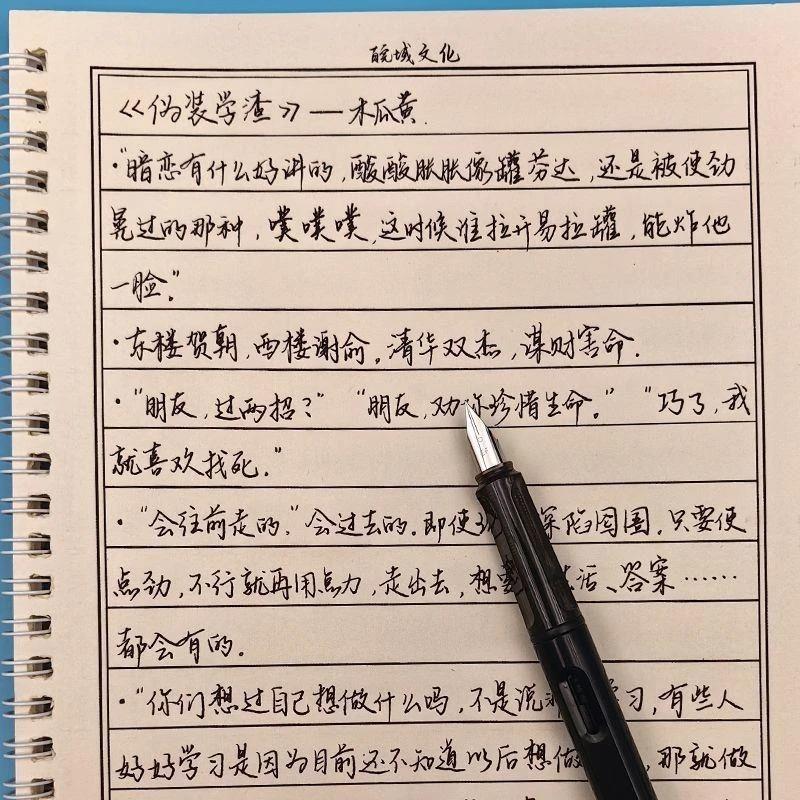 皖域文化
《伪装学渣》——木瓜黄.
·"暗恋有什么好讲的，酸酸胀胀像罐芬达，还是被使劲
晃过的那种，噗噗噗，这时候谁拉开易拉罐，能炸他
一脸。"
·东楼贺朝，西楼谢俞。清华双杰，谋财害命.
·"朋友，过两招？" "朋友，劝你珍惜生命。" "巧了，我
就喜欢找死."
·"会往前走的."会过去的.即使 深陷囹圄.只要使
点劲，不行就再用点力，走出去，想要 生活、答案……
都会有的.
·"你们想过自己想做什么吗，不是说 学习，有些人
好好学习是因为目前还不知道以后想做 ，那就做